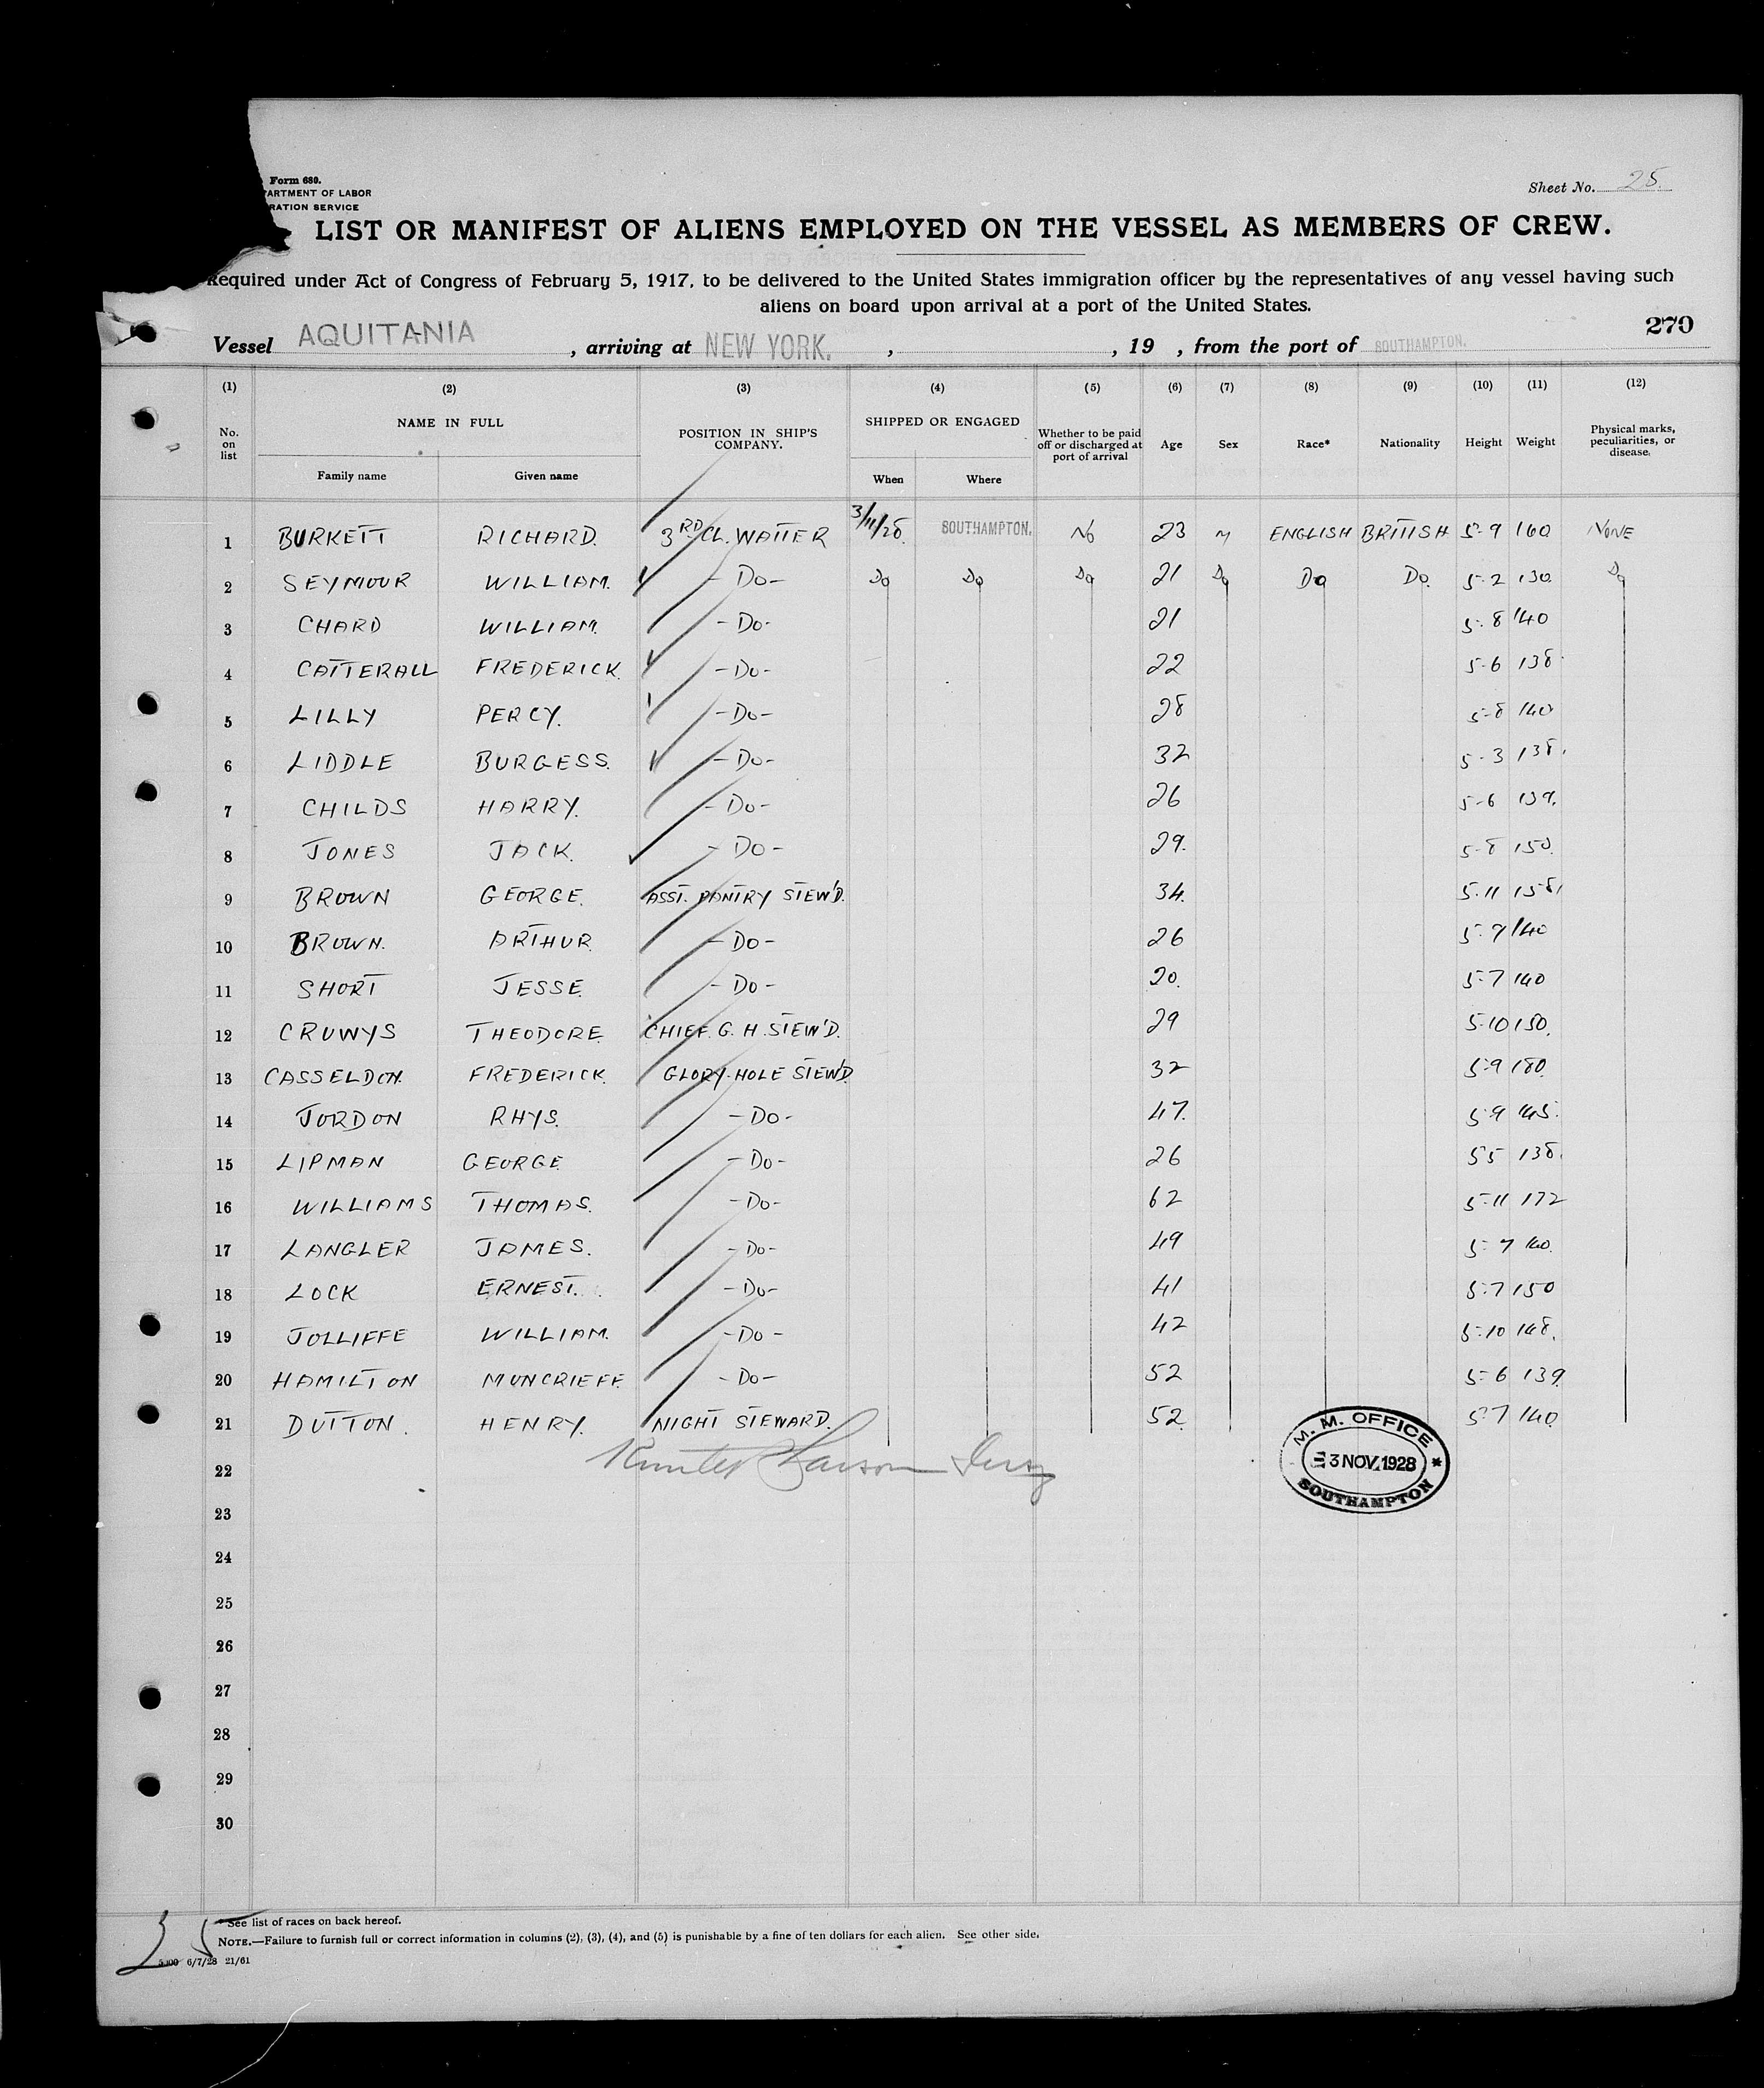 Form 680.
ARTMENT OF LABOR
RATION SERVICE
Sheet No. 25.
LIST OR MANIFEST OF ALIENS EMPLOYED ON THE VESSEL AS MEMBERS OF CREW.
Required under Act of Congress of February 5, 1917, to be delivered to the United States immigration officer by the representatives of any vessel having such
aliens on board upon arrival at a port of the United States.
270
Vessel AQUITANIA , arriving at NEW YORK. , , 19 , from the port of SOUTHAMPTON.
(1) (2) (3) (4) (5) (6) (7) (8) (9) (10) (11) (12)
No. on list NAME IN FULL Family name Given name POSITION IN SHIP'S COMPANY. SHIPPED OR ENGAGED When Where Whether to be paid off or discharged at port of arrival Age Sex Race* Nationality Height Weight Physical marks, peculiarities, or disease.
1 BURKETT RICHARD. 3RD CL. WAITER 3/11/28. SOUTHAMPTON. No 23 M ENGLISH BRITISH 5-9 160 NONE
2 SEYMOUR WILLIAM. - Do - Do Do Do 21 Do Do Do. 5-2 130 Do
3 CHARD WILLIAM. - Do - 21 5-8 140
4 CATTERALL FREDERICK. - Do - 22 5-6 138
5 LILLY PERCY. - Do - 28 5-8 140
6 LIDDLE BURGESS. - Do - 32 5-3 138.
7 CHILDS HARRY. - Do - 26 5-6 139.
8 JONES JACK. - Do - 29. 5-8 150.
9 BROWN GEORGE. ASST. PANTRY STEW'D. 34. 5-11 158.
10 BROWN. ARTHUR. - Do - 26 140
11 SHORT JESSE. - Do - 20. 5-7 140
12 CRUWYS THEODORE. CHIEF. G. H. STEW'D. 29 5-10 150.
13 CASSELDON. FREDERICK. GLORY-HOLE STEW'D. 32 5-9 180.
14 JORDON RHYS. - Do - 47. 5-9 145.
15 LIPMAN GEORGE. - Do - 26 5 5 138.
16 WILLIAMS THOMAS. - Do - 62 5-11 172
17 LANGLER JAMES. - Do - 49 5-7 140.
18 LOCK ERNEST. - Do - 41 5-7 150
19 JOLLIFFE WILLIAM. - Do - 42 5-10 148.
20 HAMILTON MUNCRIEFF. - Do - 52 5-6 139.
21 DUTTON. HENRY. NIGHT STEWARD. 52. 5-7 140.
22
23
24
25
26
27
28
29
30
M. M. OFFICE
3 NOV. 1928
SOUTHAMPTON
*See list of races on back hereof.
NOTE.—Failure to furnish full or correct information in columns (2), (3), (4), and (5) is punishable by a fine of ten dollars for each alien. See other side.
6/7/28 21/61